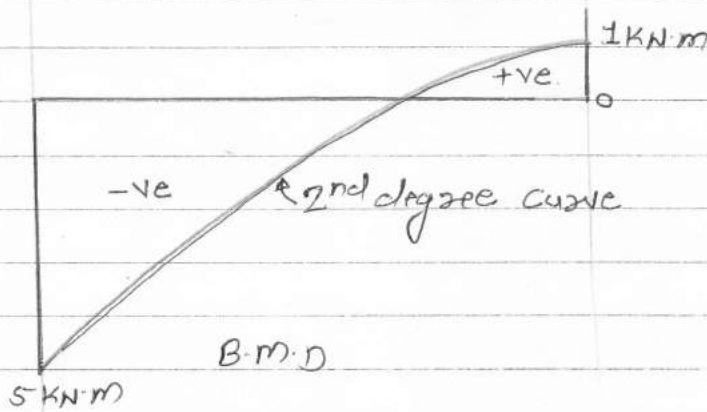 1KN·m
+ve
0
-ve
2nd degree curve
B·M·D
5KN·m